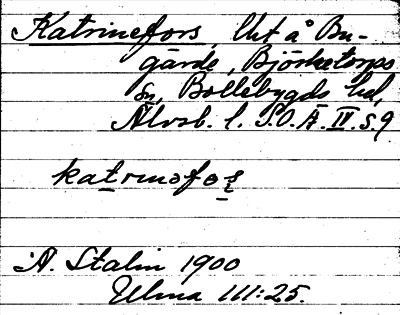 Katrinefors, lht å Bu-
gärde, Björketorps
sn, Bollebygds hd,
Älvsb. l. S.O.Ä. IV. S. 9
katrinəfoʂ
A. Stalin 1900
Ulma 111:25.